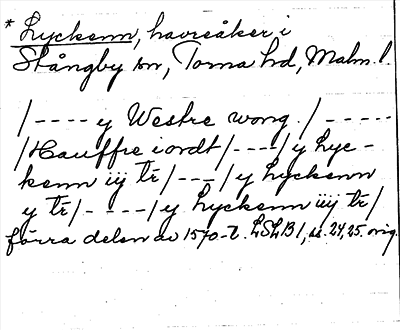 * Lyckenn, havreåker i
Stångby sn, Torna hd, Malm. l.
/---- y Westre wong. / -----
/Hauffre iordt /----/ y Lyc-
kenn iij tr /---/ y Lyckenn
y tr /----/ y Lyckenn iiij tr /
förra delen av 1570-t. LSLB 1, ss. 24, 25. orig.